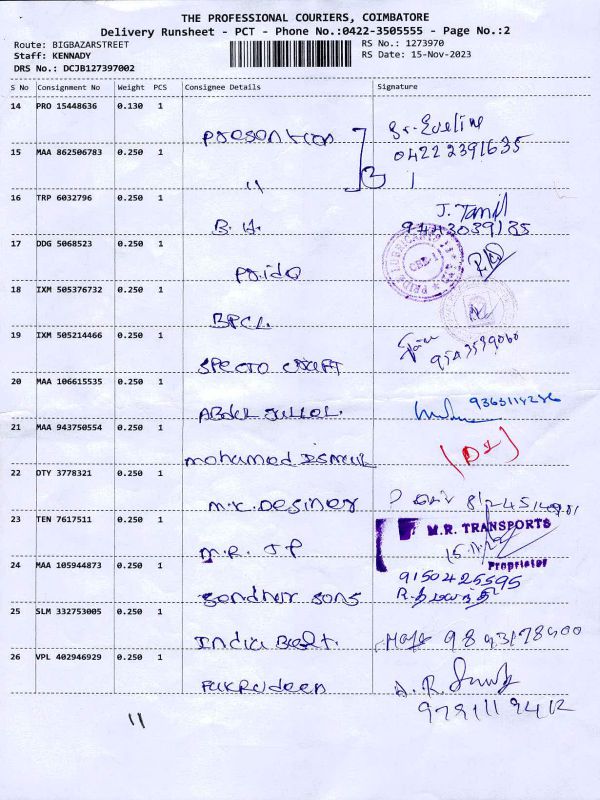 THE PROFESSIONAL COURIERS, COIMBATORE
Delivery Runsheet - PCT - Phone No.:0422-3505555 - Page No.:2
Route: BIGBAZARSTREET
RS No.: 1273970
Staff: KENNADY
RS Date: 15-Nov-2023
DRS No.: DCJB127397002
S No Consignment No Weight PCS Consignee Details Signature
14 PRO 15448636 0.130 1
Presention Sr. Eveline
15 MAA 862506783 0.250 1 04222391635
11
16 TRP 6032796 0.250 1 J. Tamil
B.H. 9443039185
17 DDG 5068523 0.250 1
Pride
18 IXM 505376732 0.250 1
BPCL
19 IXM 505214466 0.250 1
SPECTO CRAFT
20 MAA 106615535 0.250 1
Abdul Jullol.
21 MAA 943750554 0.250 1
mohamed Ismail
22 DTY 3778321 0.250 1
M.K. Desiner
23 TEN 7617511 0.250 1 M.R. TRANSPORTS
M.R. JP Proprietor
24 MAA 105944873 0.250 1 9150425595
Sons
25 SLM 332753005 0.250 1
India Belt.
26 VPL 402946929 0.250 1
Fakrudeen
11